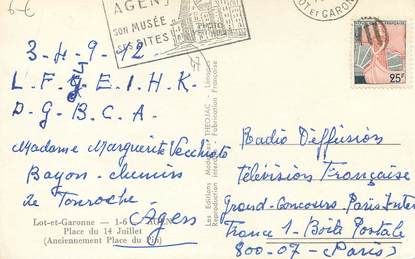 6-€
AGEN
SON MUSÉE
SES SITES
LOT et GARONNE
25F
3-4-9-12
L-F-G-E-I-H-K-
D-G-B-C-A
Madame Marguerite Vecchiato
Bayon-chemin
de
Agen
Lot-et-Garonne — 1-6 AGEN
Place du 14 Juillet
(Anciennement Place du Pin)
Les Editions THEOJAC - Limoges
Reproduction Fabrication Française
Radio Diffusion
Télévision Française
Grand-Concours-Paris Inter
France 1-Boite Postale
800-07-(Paris)